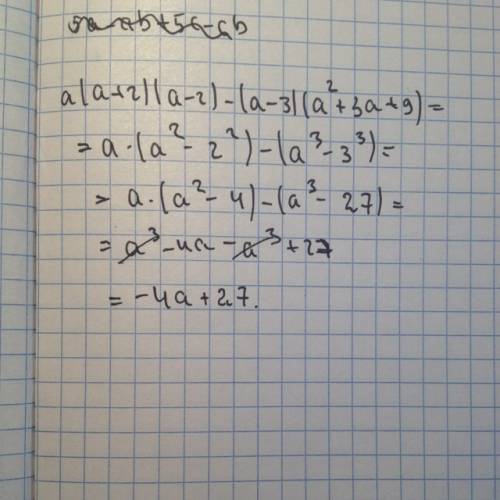 a(a+2)(a-2)-(a-3)(a²+3a+9)=
=a·(a²-2²)-(a³-3³)=
=a·(a²-4)-(a³-27)=
=a³-4a-a³+27
=-4a+27.